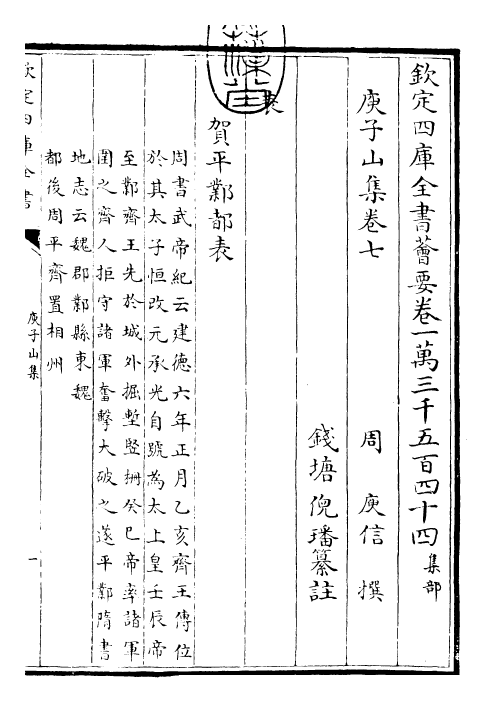 欽定四庫全書薈要卷一萬三千五百四十四 集部
庾子山集卷七
周 庾信 撰
錢塘倪璠纂註
表
賀平鄴都表
周書武帝紀云建德六年正月乙亥齊王傳位
於其太子恒改元承光自號為太上皇壬辰帝
至鄴齊王先於城外掘塹竪柵癸巳帝率諸軍
圍之齊人拒守諸軍奮擊大破之遂平鄴隋書
地志云魏郡鄴縣東魏
都後周平齊置相州
欽定四庫全書
庾子山集
一